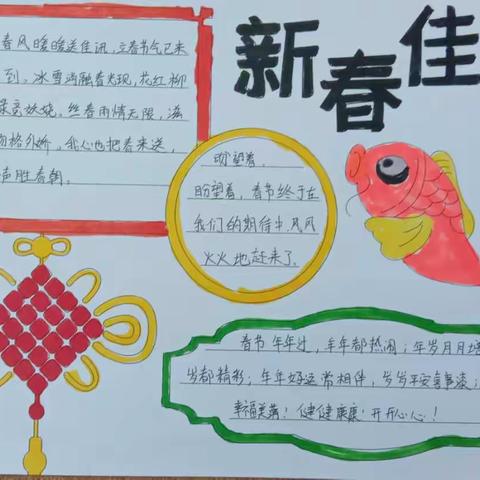 新春佳
春风暖暖送佳讯，立春节气已来
到。冰雪消融春光现，花红柳
绿竞妖娆。丝春雨情无限，滋
物格外娇。我心也把春来送，
声胜春朝。
盼望着，
盼望着，春节终于在
我们的期待中，风风
火火地赶来了。
春节年年过，年年都热闹；年岁月月增
岁都精彩；年年好运常相伴，岁岁平安喜事凑；
幸福美满！健健康康！开开心心！